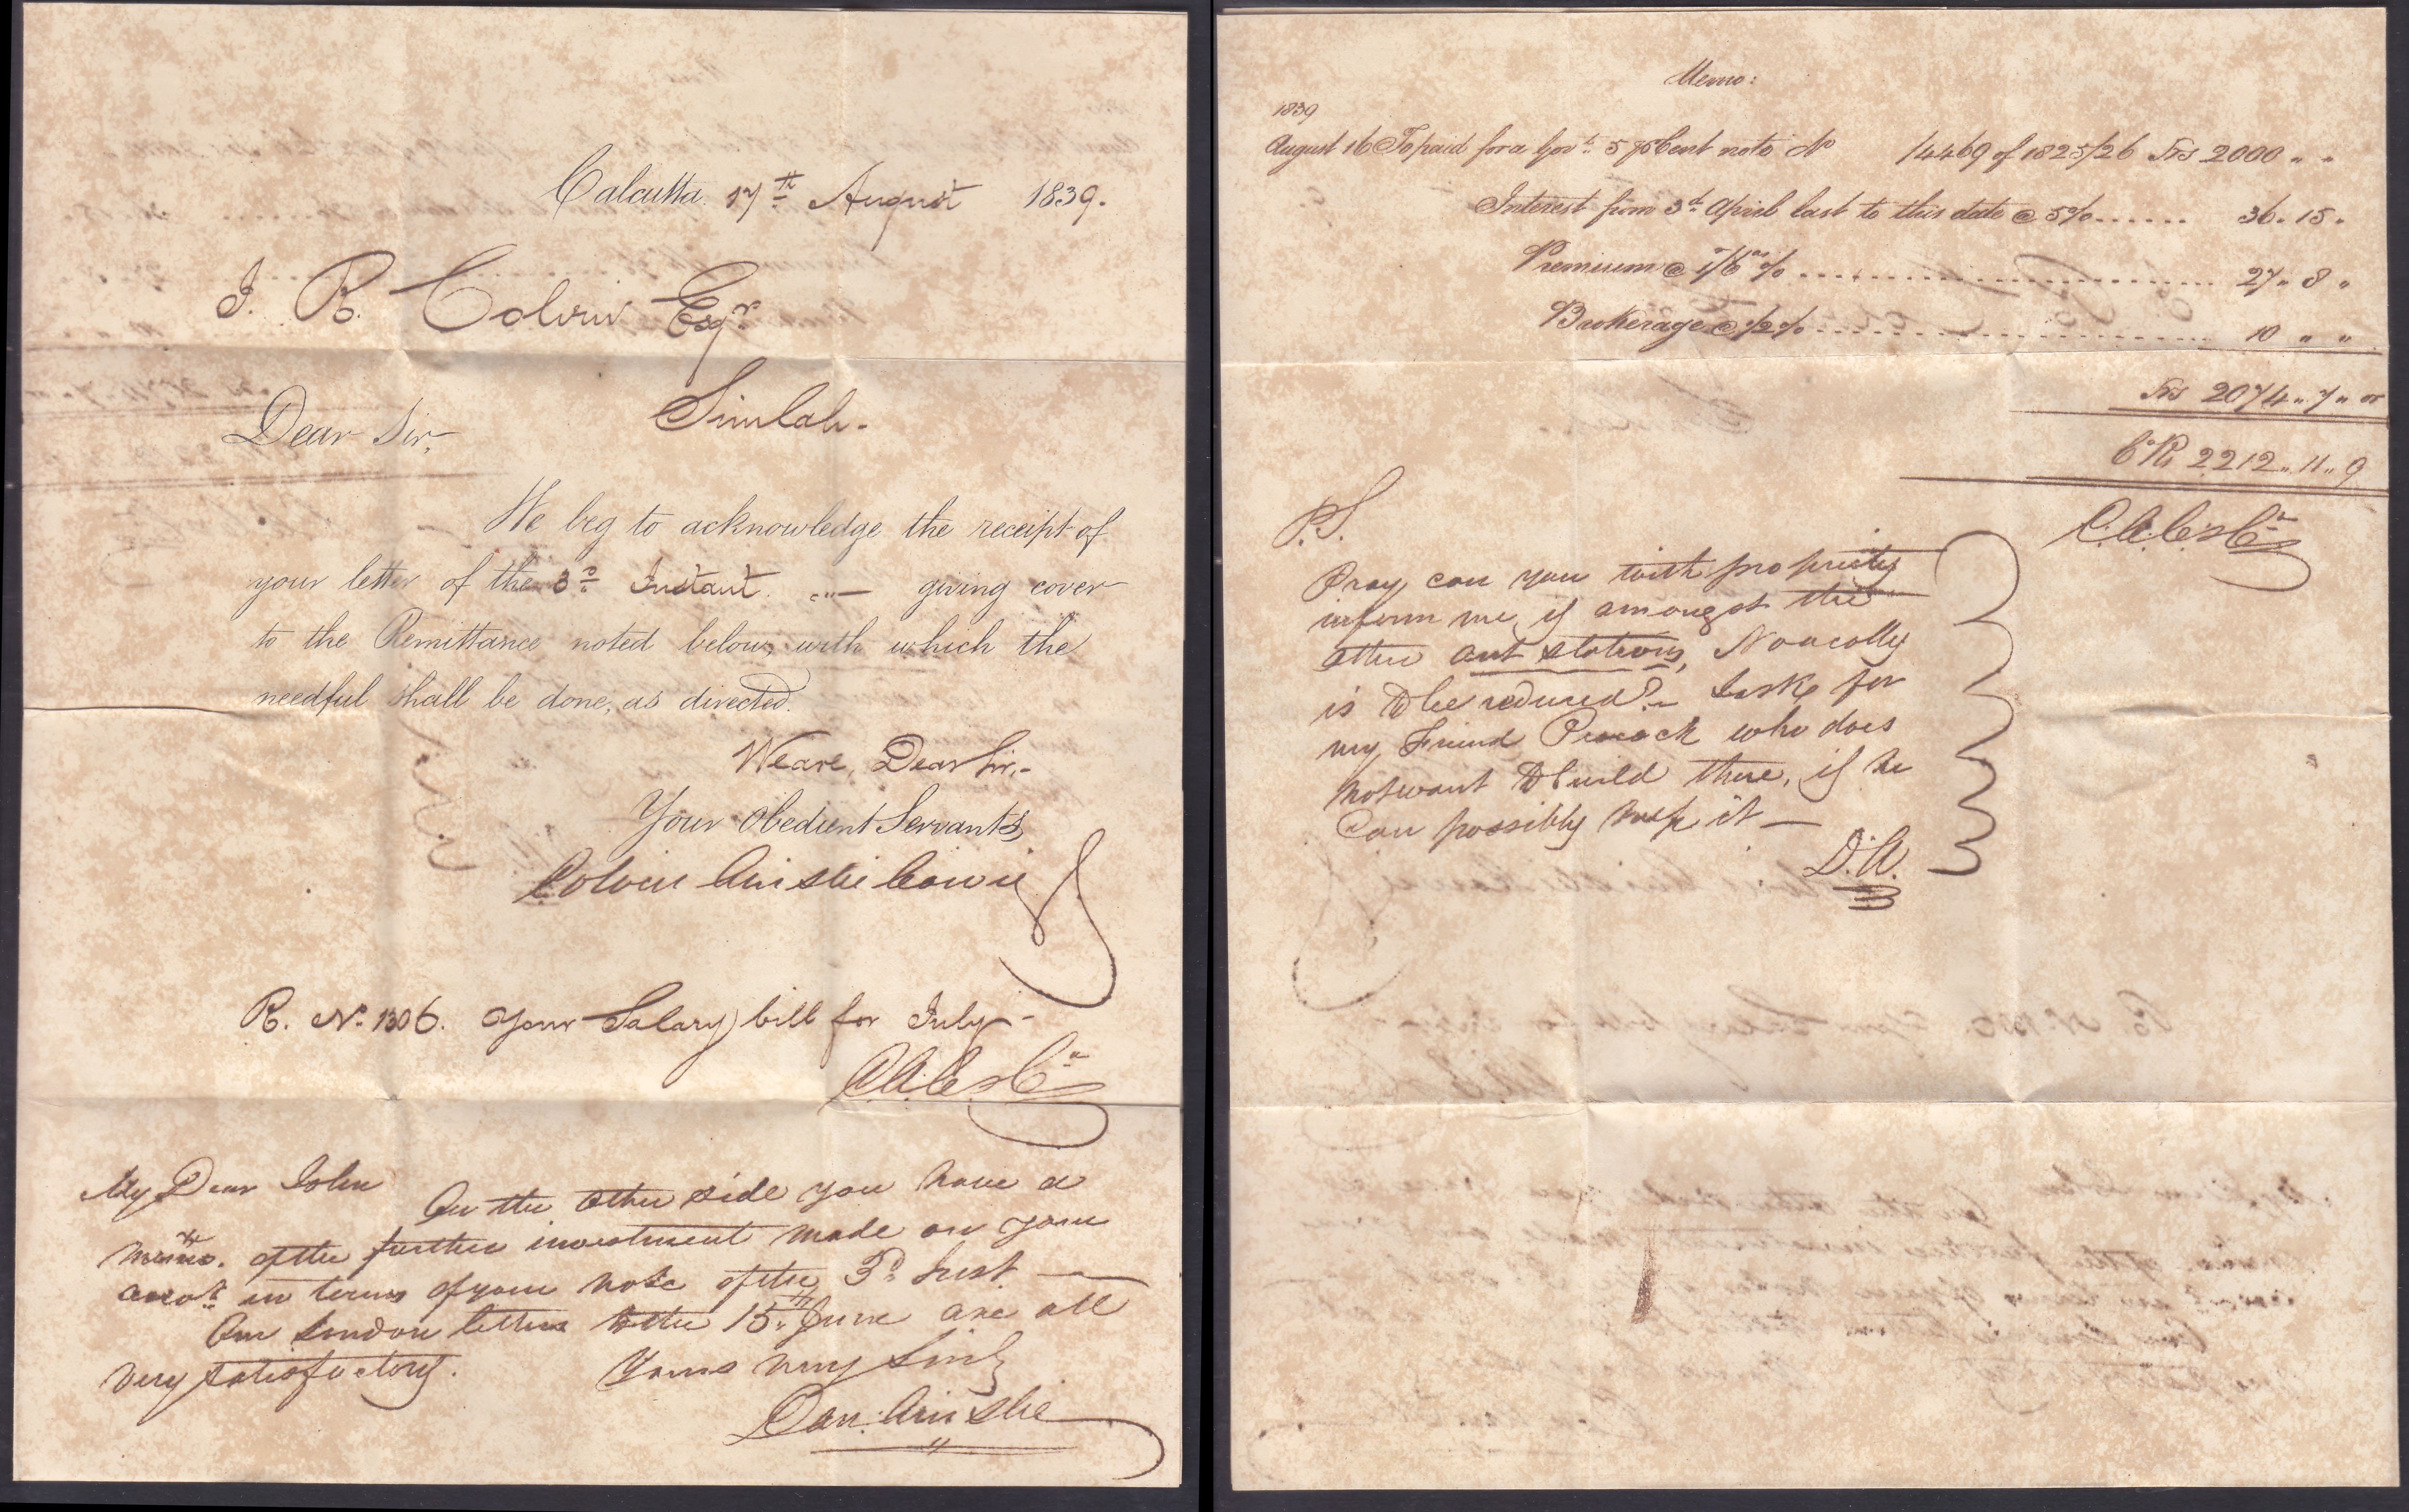 Calcutta 17th August 1839.
J. R. Colvin Esqr
Simlah.
Dear Sir,
We beg to acknowledge the receipt of
your letter of the 3d Instant. „— giving cover
to the Remittance noted below, with which the
needful shall be done, as directed.
We are, Dear Sir,-
Your Obedient Servants
Colvin Ainslie Cowie
R. No 1306. Your Salary bill for July -
C.A.C. & Co
My Dear John
On the other side you have a
memo. of the further investment made on your
accot in terms of your note of the 3d Inst —
Our London letters to the 15th June are all
very satisfactory.
Yours very Sincly
Dan: Ainslie
Memo:
1839
August 16 To paid for a Govt 5 p Cent note No 14469 of 1825/26 Srs 2000 „ „
Interest from 3d April last to this date @ 5% ...... 36 „ 15 „
Premium @ 1/6 as % ...... 27 „ 8 „
Brokerage @ 1/2 % ...... 10 „ „
Srs 2074 „ 7 „ or
Co Rs 2212 „ 11 „ 9
C.A.C. & Co
P.S.
Pray can you with propriety
inform me, if amongst the
other out stations, Noacolly
is to be reduced? — I ask for
my Friend Peacock who does
not want to build there, if he
can possibly help it —
D.A.